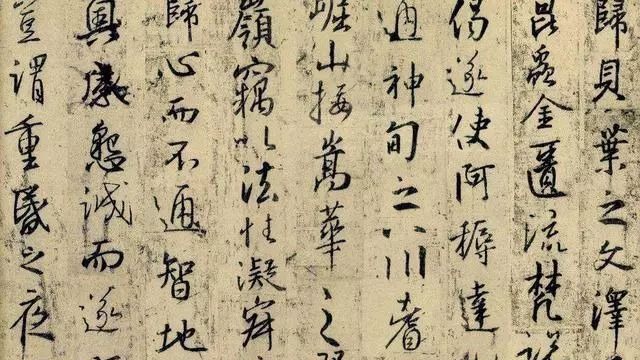 歸貝葉之文澤
昆蟲金匱流梵說
偈遂使阿耨達
通神甸之八川耆
崛山接嵩華之
嶺竊以法性凝寂
歸心而不通智地
奧感懇誠而遂
豈謂重昏之夜